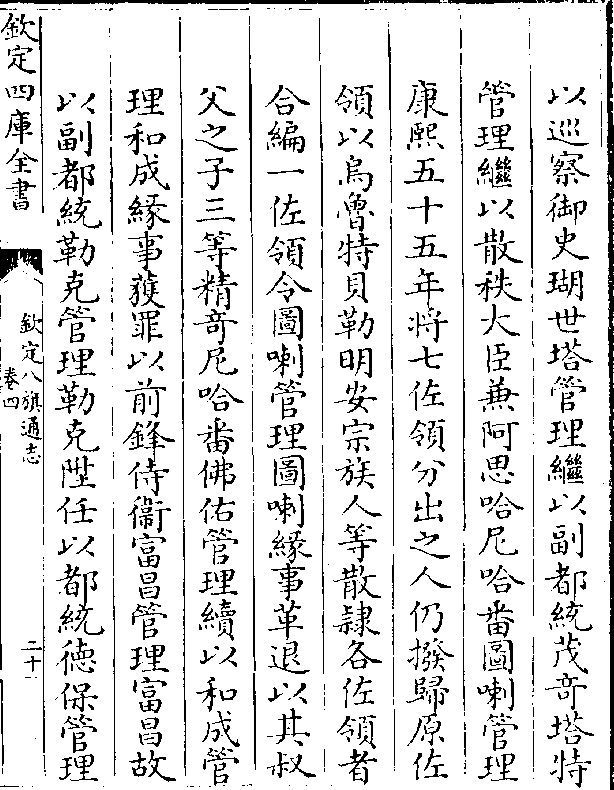 以巡察御史瑚世塔管理繼以副都統茂竒塔特
管理繼以散秩大臣兼阿思哈尼哈番圖喇管理
康熙五十五年將七佐領分出之人仍撥歸原佐
領以烏魯特貝勒明安宗族人等散隷各佐領者
合編一佐領令圖喇管理圖喇緣事革退以其叔
父之子三等精竒尼哈番佛佑管理續以和成管
理和成緣事獲罪以前鋒侍衞富昌管理富昌故
以副都統勒克管理勒克陞任以都統德保管理
欽定四庫全書
欽定八旗通志
卷四
二十